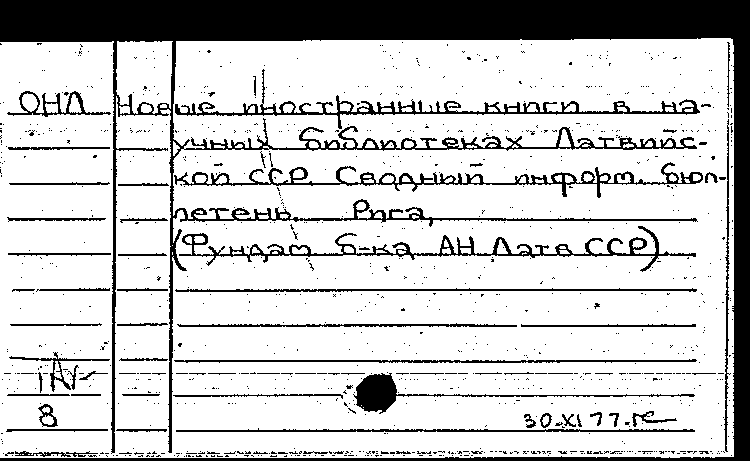 ОНЛ Новые иностранные книги в на-
учных библиотеках Латвийс-
кой ССР. Сводный информ. бюл-
летень. Рига,
(Фундам б-ка АН Латв ССР).
8
30.XI 77.